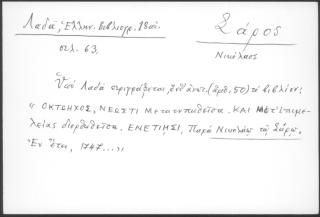 Λαδᾶ, Ἑλλην. Βιβλιογρ. 18 αἰ.
Σάρος
σελ. 63.
Νικόλαος
Ὑπὸ Λαδᾶ περιγράφεται (ἀριθ. 50) τὸ βιβλίον:
« ΟΚΤΩΗΧΟΣ, ΝΕΩΣΤΙ Μετατυπωθεῖσα. ΚΑΙ Μετ' ἐπιμε-
λείας διορθωθεῖσα. ΕΝΕΤΙΗΣΙ, Παρὰ Νικολάῳ τῷ Σάρῳ.
Ἐν ἔτει, 1747...»